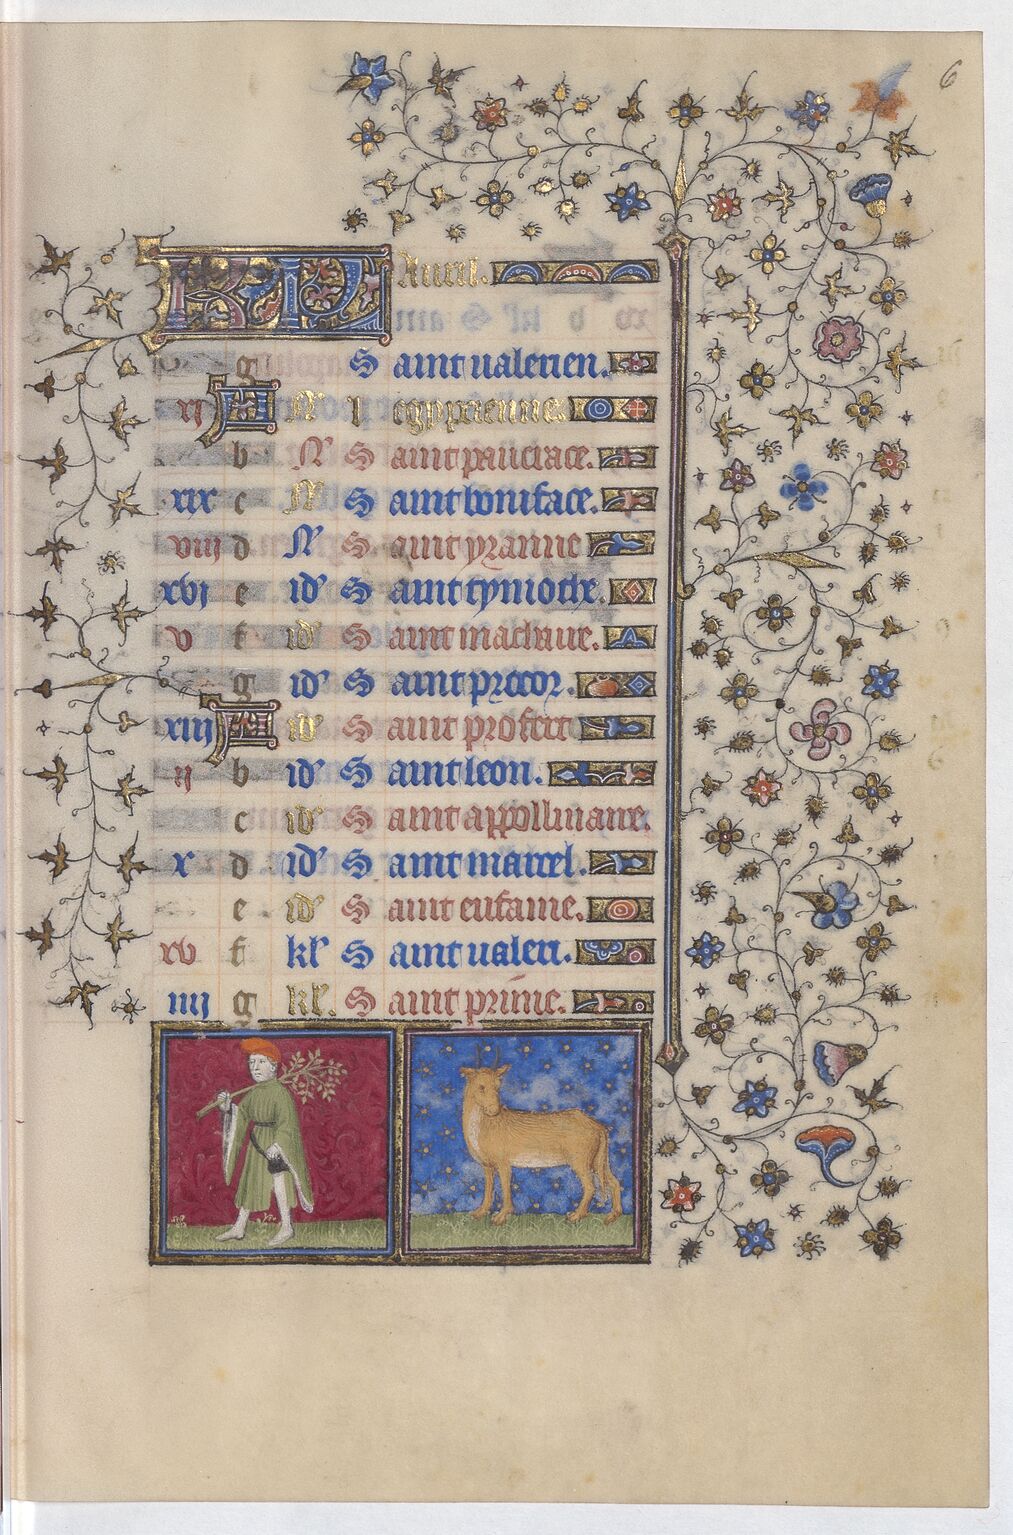 6
KL Auril.
g Saint ualerien.
xi A N l egyptienne.
b N Saint panciace.
xix c N Saint boniface.
viii d N Saint
xvi e id Saint tymothe
v f id Saint
g id Saint precor.
xiii A id Saint profect
ii b id Saint leon.
c id Saint appollinaire.
x d id Saint marcel.
e id Saint eufaine.
xv f kl Saint ualeri.
iiii g kl. Saint prime.